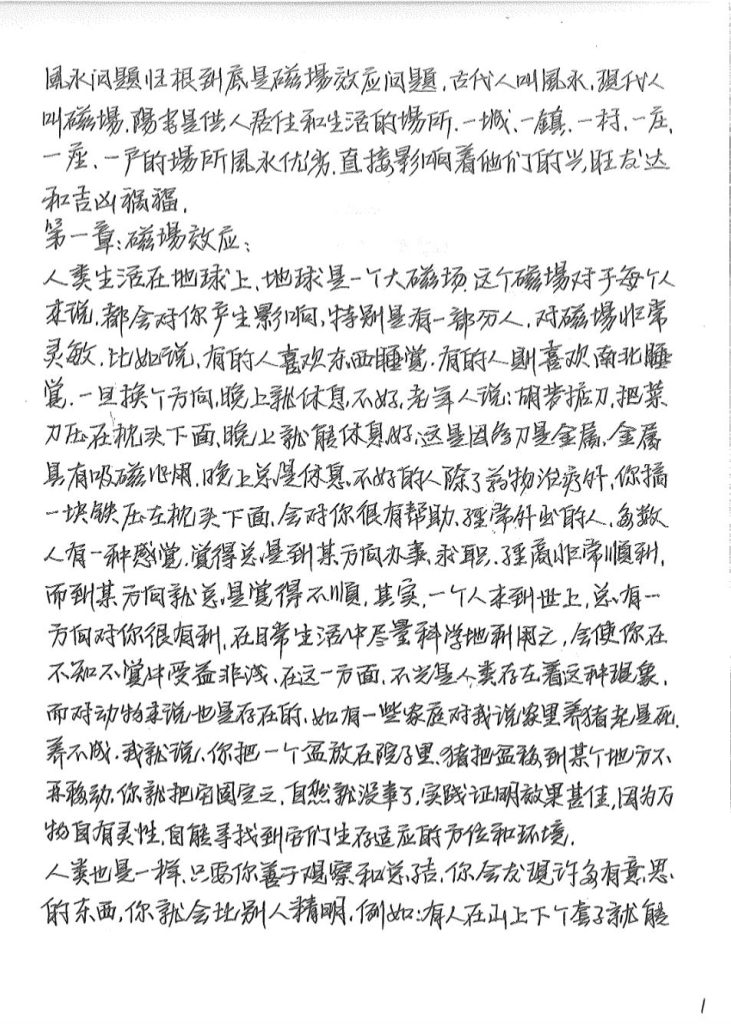 風水问題归根到底是磁場效应问題,古代人叫風水,现代人
叫磁場,陽宅是供人居住和生活的場所.一城、一鎮、一村、一庄、
一座、一户的場所風水优劣,直接影响着他们的兴旺发达
和吉凶祸福.
第一章:磁場效应:
人类生活在地球上,地球是一个大磁场,这个磁場对于每个人
来说,都会对你产生影响,特别是有一部分人,对磁場非常
灵敏.比如说,有的人喜欢东西睡覚,有的人則喜欢南北睡
覚.一旦换个方向,晚上就休息不好,老年人说:胡梦掂刀,把菜
刀压在枕头下面,晚上就能休息好,这是因为刀是金属,金属
具有吸磁作用,晚上总是休息不好的人除了药物治疗外,你搞
一块铁压在枕头下面,会对你很有帮助.經常外出的人,多数
人有一种感覚,覚得总是到某方向办事、求职、經商非常順利,
而到某方向就总是覚得不順,其实,一个人来到世上,总有一
方向对你很有利,在日常生活中尽量科学地利用之,会使你在
不知不覚中受益非浅.在这一方面,不光是人类存在着这种现象,
而对动物来说也是存在的,如有一些家庭对我说家里养猪老是死,
养不成.我就说,你把一个盆放在院子里,猪把盆移到某个地方不
再移动,你就把它固定之,自然就没事了,实践证明效果甚佳,因为万
物自有灵性,自能寻找到它们生存适应的方位和环境.
人类也是一样,只要你善于观察和总结,你会发现許多有意思
的东西,你就会比别人精明,例如:有人在山上下个套子就能
1